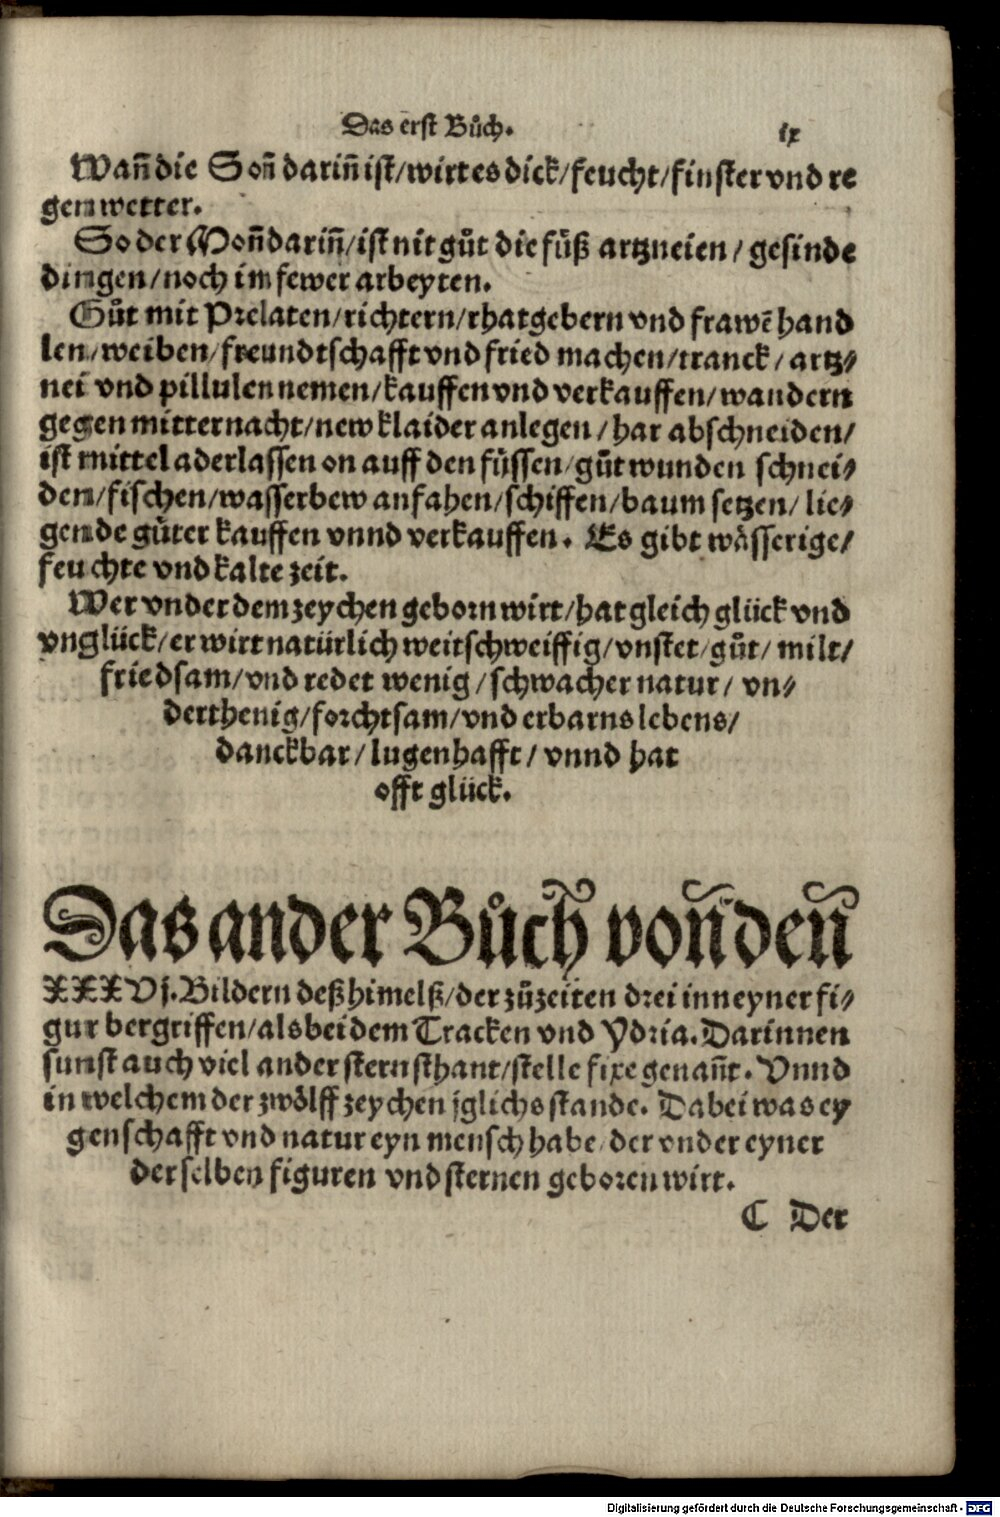 Das erst Bůch. ix
Wañ die Soñ dariñ ist/wirt es dick/feucht/finster vnd re
genwetter.
So der Moñ dariñ/ist nit gůt die fůß artzneien/gesinde
dingen/noch im fewer arbeyten.
Gůt mit Prelaten/richtern/rhatgebern vnd frawē hand
len/weiben/freundtschafft vnd fried machen/tranck/artz⸗
nei vnd pillulen nemen/kauffen vnd verkauffen/wandern
gegen mitternacht/new klaider anlegen/har abschneiden/
ist mittel aderlassen on auff den füssen/gůt wunden schnei⸗
den/fischen/wasserbew anfahen/schiffen/baum setzen/lie⸗
gende gůter kauffen vnnd verkauffen. Es gibt wåsserige/
feuchte vnd kalte zeit.
Wer vnder dem zeychen geborn wirt/hat gleich glück vnd
vnglück/er wirt natürlich weitschweiffig/vnstet/gůt/milt/
friedsam/vnd redet wenig/schwacher natur/vn⸗
derthenig/forchtsam/vnd erbarns lebens/
danckbar/lugenhafft/vnnd hat
offt glück.
Das ander Bůch voñ deñ
XXXVj. Bildern deß himelß/der zůzeiten drei inn eyner fi⸗
gur bergriffen/als bei dem Tracken vnd Ydria. Darinnen
sunst auch viel ander stern sthant/stelle fixe genañt. Vnnd
in welchem der zwölff zeychen jglichs stande. Dabei was ey
genschafft vnd natur eyn mensch habe/der vnder eyner
der selben figuren vnd sternen geboren wirt.
C Der
Digitalisierung gefördert durch die Deutsche Forschungsgemeinschaft - DFG